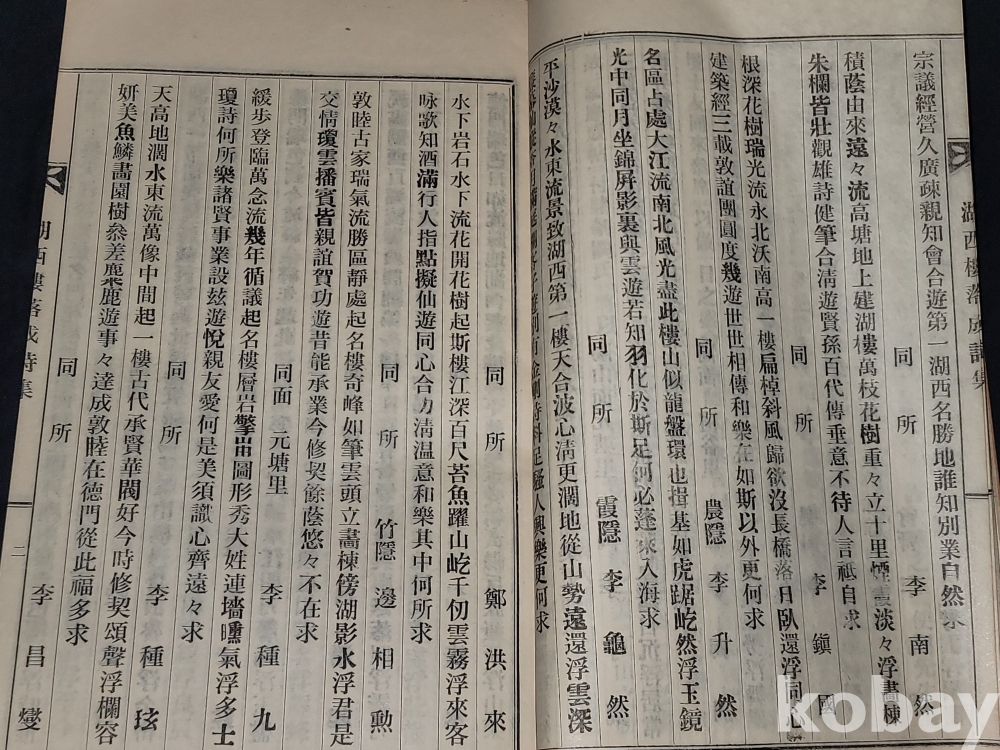 湖西樓落成詩集
宗議經營久廣疎親知會合遊第一湖西名勝地誰知別業自然求
同所 李南然
積蔭由來遠々流高塘地上建湖樓萬枝花樹重々立十里煙霞淡々浮畵棟
朱欄皆壯觀雄詩健筆合淸遊賢孫百代傳垂意不待人言祗自求
同所 李鎭國
根深花樹瑞光流水北沃南高一樓扁棹斜風歸欲沒長橋落日臥還浮同心
建築經三載敦誼團圓度幾遊世世相傳和樂在如斯以外更何求
同所 農隱 李升然
名區占處大江流南北風光盡此樓山似龍盤環也揖基如虎踞屹然浮玉鏡
光中同月坐錦屛影裏與雲遊若知羽化於斯足何必蓬萊入海求
同所 霞隱 李龜然
平沙漠々水東流景致湖西第一樓天合波心淸更濶地從山勢遠還浮雲深
人興樂更何求
鄭洪來
同所
水下岩石水下流花開花樹起斯樓江深百尺苔魚躍山屹千仞雲霧浮來客
咏歌知酒滿行人指點擬仙遊同心合力淸溫意和樂其中何所求
同所 竹隱 邊相勳
敦睦古家瑞氣流勝區靜處起名樓奇峰如筆雲頭立畵棟傍湖影水浮君是
交情瓊雲播賓皆親誼賀功遊昔能承業今修契餘蔭悠々不在求
同面 元塘里 李種九
緩步登臨萬念流幾年循議起名樓層岩擎出圖形秀大姓連墻曛氣浮多士
瓊詩何所樂諸賢事業設玆遊悅親友愛何是美須識心齊遠々求
同所 李種玹
天高地濶水東流萬像中間起一樓古代承賢華閥好今時修契頌聲浮欄容
妍美魚鱗畵園樹叅差麋鹿遊事々達成敦睦在德門從此福多求
同所 李昌燮
湖西樓落成詩集
二
kobay